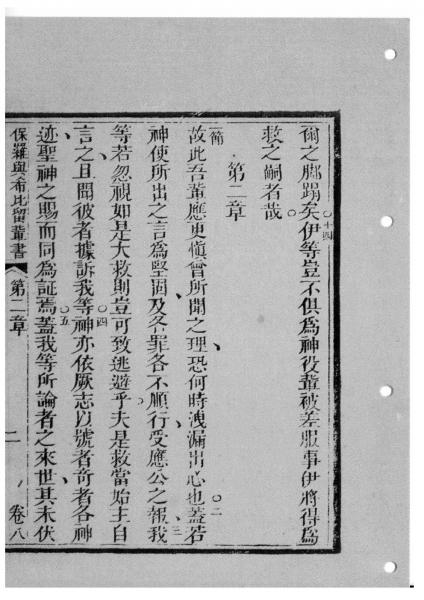 爾之脚蹋矣○十四伊等豈不俱爲神役輩被差服事伊將得爲
救之嗣者哉
第二章
一節故此吾輩應更愼曾所聞之理恐何時洩漏出心也○二蓋若
神使所出之言爲堅固及各罪各不順行受應公之報三我
等若忽視如是大救則豈可致逃避乎夫是救當始主自
言之且聞彼者據訴我等○四神亦依厥志以號者奇者各神
迹聖神之賜而同爲証焉○五蓋我等所論者之來世其未伏
保羅與希比留輩書 第二章 二 卷八